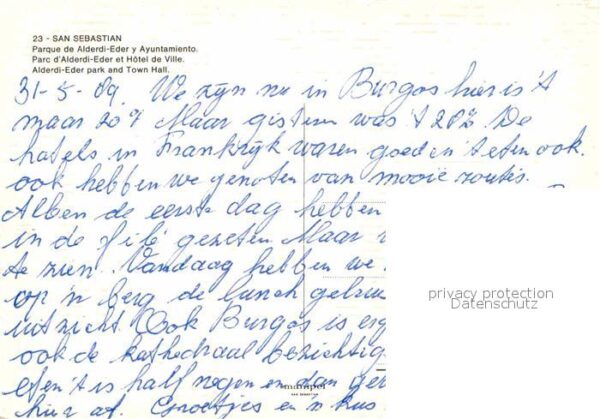 23 - SAN SEBASTIAN
Parque de Alderdi-Eder y Ayuntamiento.
Parc d'Alderdi-Eder et Hôtel de Ville.
Alderdi-Eder park and Town Hall.
31-5-89. We zijn nu in Burgos hier is 't
maar 20° Maar gisteren was 't 28°. De
hotels in Frankrijk waren goed en 't eten ook.
ook hebben we genoten van mooie routes.
Alleen de eerste dag hebben
in de file gezeten Maar
te zien. Vandaag hebben we
op 'n berg de lunch gebruik
uitzicht. Ook Burgos is erg
ook de kathedraal bezichtig
eten 't is half negen en dan ge
hier af. Groetjes en 'n kus
privacy protection
Datenschutz
manipel
SAN SEBASTIAN